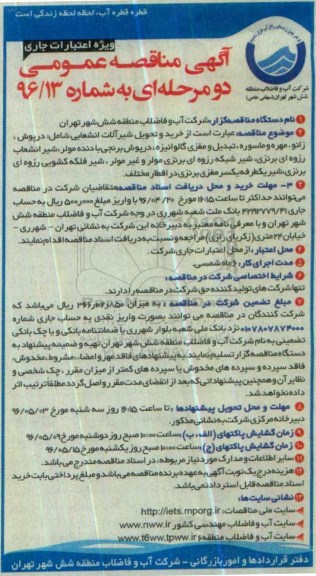 قطره قطره آب، لحظه لحظه زندگی است
ویژه اعتبارات جاری
آگهی مناقصه عمومی
دو مرحله‌ای به شماره ۹۶/۱۳
شرکت آب و فاضلاب منطقه
شش شهر تهران (سهامی خاص)
۱ نام دستگاه مناقصه‌گزار: شرکت آب و فاضلاب منطقه شش شهر تهران
۲ موضوع مناقصه: عبارت است از خرید و تحویل شیرآلات انشعابی شامل: درپوش،
زانو، مهره و ماسوره، تبدیل و مغزی گالوانیزه، درپوش برنجی با دنده مولر، شیر انشعاب
رزوه ای برنزی، شیر شبکه رزوه ای برنزی مولر و غیر مولر، شیر فلکه کشویی رزوه ای
برنزی، شیر یکطرفه یکسر مغزی برنزی در اقطار مختلف.
۳- مهلت خرید و محل دریافت اسناد مناقصه: متقاضیان شرکت در مناقصه
می‌توانند حداکثر تا ساعت ۱۶:۱۵ مورخ ۹۶/۰۴/۲۰ با واریز مبلغ ۵۰۰،۰۰۰ ریال به حساب
بانک ملت شعبه شهرری در وجه شرکت آب و فاضلاب منطقه شش
شهر تهران و با معرفی نامه معتبر به دبیرخانه این شرکت به نشانی تهران - شهرری -
خیابان ۲۴متری (زکریای رازی) مراجعه و نسبت به دریافت اسناد مناقصه اقدام نمایند.
۴ محل اعتبار: از محل اعتبارات جاری شرکت.
۵ مدت اجرای کار: ۶ ماه شمسی.
۶ شرایط اختصاصی شرکت در مناقصه:
تنها شرکت های تولید کننده حق شرکت در مناقصه را دارند.
۷ مبلغ تضمین شرکت در مناقصه: به میزان ریال می‌باشد که
شرکت کنندگان در مناقصه می توانند بصورت واریز نقدی به حساب جاری شماره
نزد بانک ملی شعبه بلوار شهرری یا ضمانتنامه بانکی و یا چک بانکی
تضمینی به نام شرکت آب و فاضلاب منطقه شش شهر تهران تهیه و ضمیمه پیشنهاد به
دستگاه مناقصه گزار تسلیم نمایند. به پیشنهادهای فاقد مهر و امضاء، مشروط، مخدوش،
فاقد سپرده و سپرده های مخدوش یا سپرده های کمتر از میزان مقرر، چک شخصی و
نظایر آن و همچنین پیشنهاداتی که بعد از انقضای مدت مقرر واصل گردد مطلقا ترتیب اثر
داده نخواهد شد.
۸ مهلت و محل تحویل پیشنهادها: تا ساعت ۱۶:۱۵ روز سه شنبه مورخ ۹۶/۰۵/۰۳
دبیرخانه مرکزی شرکت به نشانی مذکور.
۹ زمان گشایش پاکتهای (الف، ب): ساعت ۱۰:۰۰ صبح روز دوشنبه مورخ ۹۶/۰۵/۰۹
۱۰ زمان گشایش پاکتهای (ج): ساعت ۱۰:۰۰ صبح روز یکشنبه مورخ ۹۶/۰۵/۱۵
۱۱ سایر اطلاعات و مدارک مورد نیاز مربوطه، در اسناد مناقصه مندرج می باشد.
۱۲ هزینه درج یک نوبت آگهی به عهده برنده مناقصه می‌باشد و مبلغ پرداختی بابت خرید
اسناد مناقصه قابل استرداد نمی باشد.
۱۳ نشانی سایت ها:
سایت ملی مناقصات: http://iets.mporg.ir
سایت آب و فاضلاب مهندسی کشور: www.nww.ir
سایت آب و فاضلاب منطقه ۶: www.t6ww.tpww.ir
دفتر قراردادها و امور بازرگانی - شرکت آب و فاضلاب منطقه شش شهر تهران